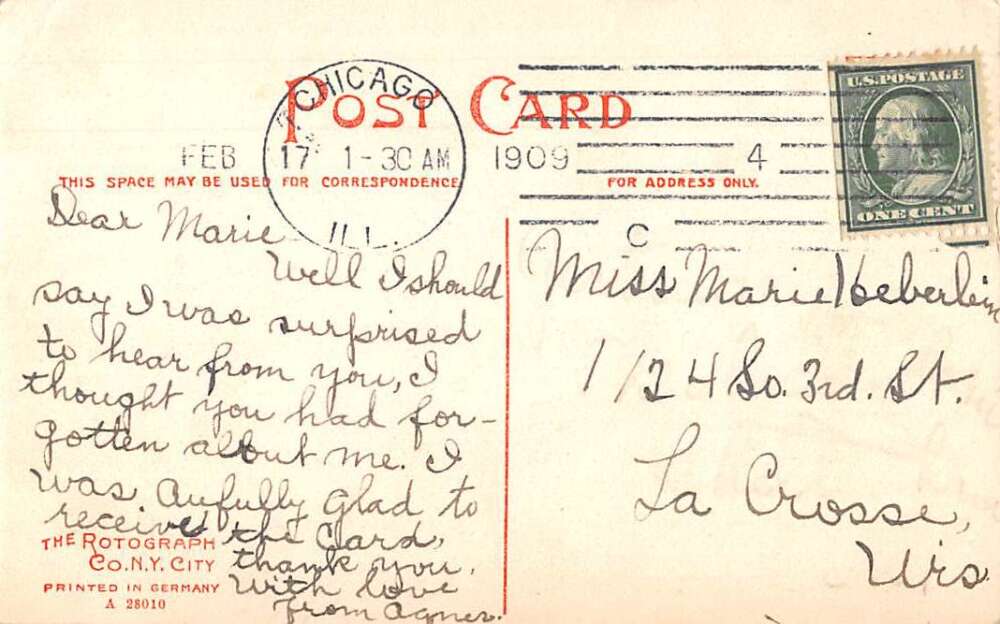 POST CARD
CHICAGO
FEB 17 1-30 AM 1909
ILL.
4
C
U.S. POSTAGE
ONE CENT
THIS SPACE MAY BE USED FOR CORRESPONDENCE
FOR ADDRESS ONLY.
Dear Marie
Well I should
say I was surprised
to hear from you, I
thought you had for-
gotten about me. I
was awfully glad to
receive the Card,
thank you.
With love
from Agnes.
Miss Marie Heberlein
1124 So. 3rd. St.
La Crosse,
Wis
THE ROTOGRAPH
CO. N.Y. CITY
PRINTED IN GERMANY
A 28010